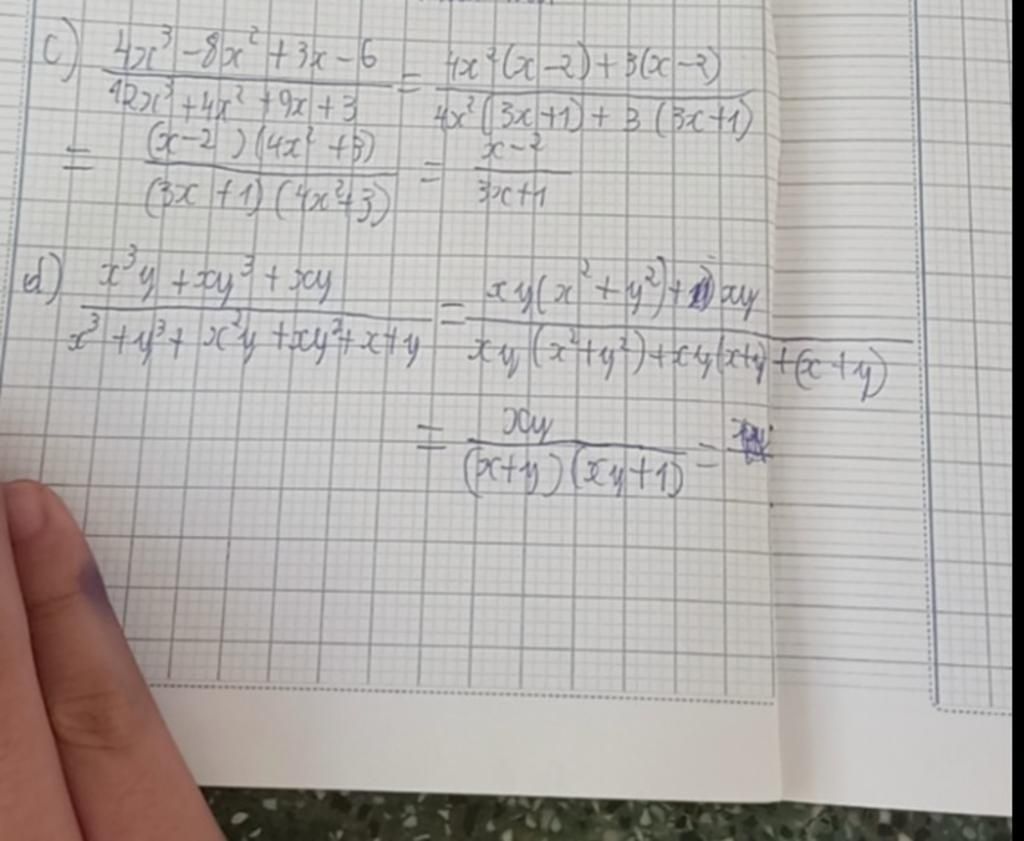 c) \frac{4x^3 - 8x^2 + 3x - 6}{12x^3 + 4x^2 + 9x + 3} = \frac{4x^2(x-2) + 3(x-2)}{4x^2(3x+1) + 3(3x+1)}
= \frac{(x-2)(4x^2+3)}{(3x+1)(4x^2+3)} = \frac{x-2}{3x+1}
d) \frac{x^3y + xy^3 + xy}{x^3 + y^3 + x^2y + xy^2 + x + y} = \frac{xy(x^2+y^2) + xy}{xy(x^2+y^2) + xy(x+y) + (x+y)}
= \frac{xy}{(x+y)(xy+1)} =